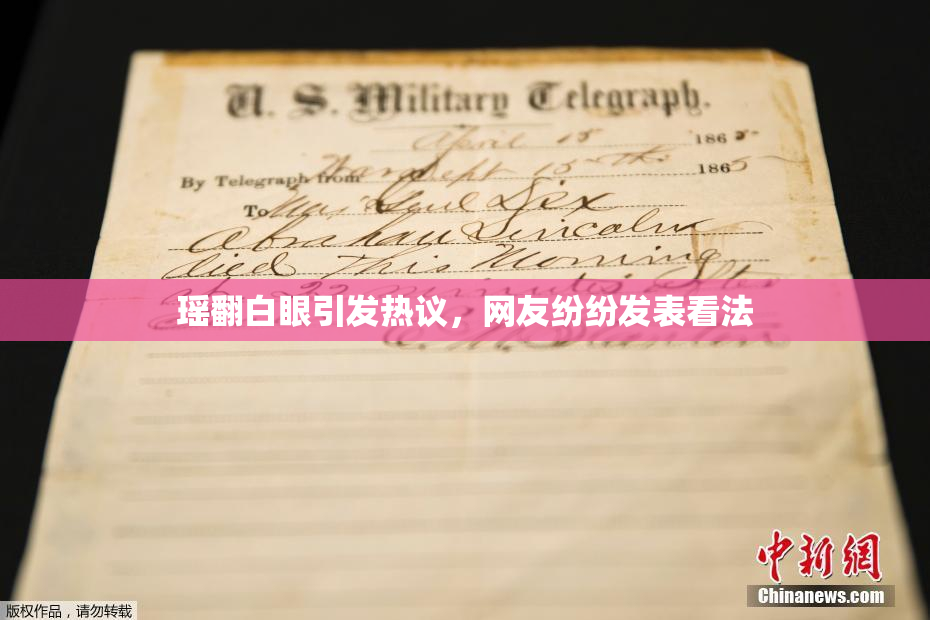 U. S. Military Telegraph.
April 15 1865
By Telegraph from War Dept 15th 1865
To Maj Genl Dix
Abraham Lincoln
died This Morning
at 22 minutes after
瑶翻白眼引发热议，网友纷纷发表看法
E. M. Stanton
中新网
Chinanews.com
版权作品，请勿转载